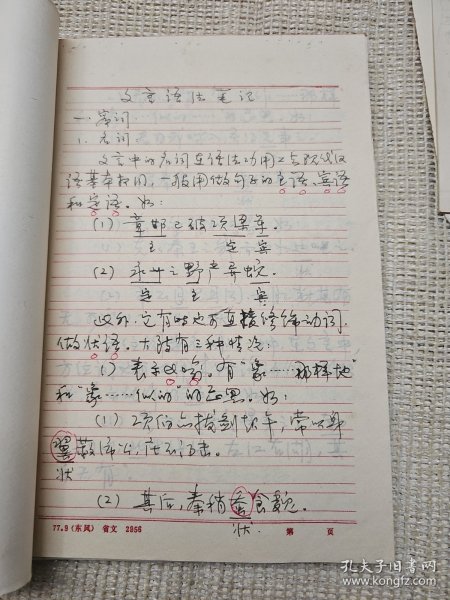 文言语法笔记
一. 实词
1. 名词
文言中的名词在语法功用上与现代汉
语基本相同，一般用做句子的主语、宾语
和定语。如：
(1) 章邯已破项梁军。
主 定 宾
(2) 永州之野产异蛇。
定 主 宾
此外，它有时也可直接修饰动词，
做状语。大致有三种情况：
1) 表示比喻，有“象……那样地”
和“象……似的”的意思。如：
(1) 项伯亦拔剑起舞，常以身
翼蔽沛公，庄不得击。
状
(2) 其后，秦稍蚕食魏。
状
77.9 (东风) 省文 2956 第 页
孔夫子旧书网